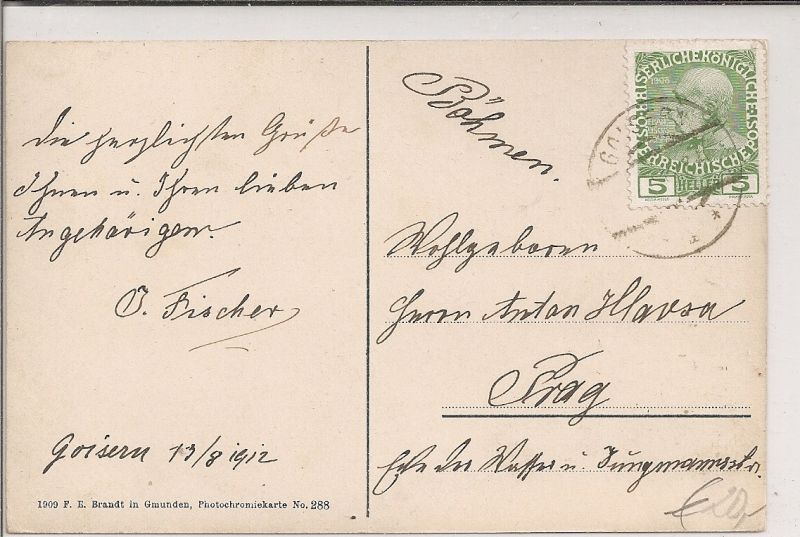 Die herzlichsten Grüße
Ihnen u. Ihren lieben
Angehörigen.
J. Fischer
Goisern 13/8 1912
1909 F. E. Brandt in Gmunden, Photochromiekarte No. 288
Böhmen.
KAISERLICHE KÖNIGLICHE
ÖSTERREICHISCHE POST
1908
5 HELLER 5
Wohlgeboren
Herrn Anton Hlavsa
Prag
Ecke der Wasser u. Jungmannstr.
€20,-